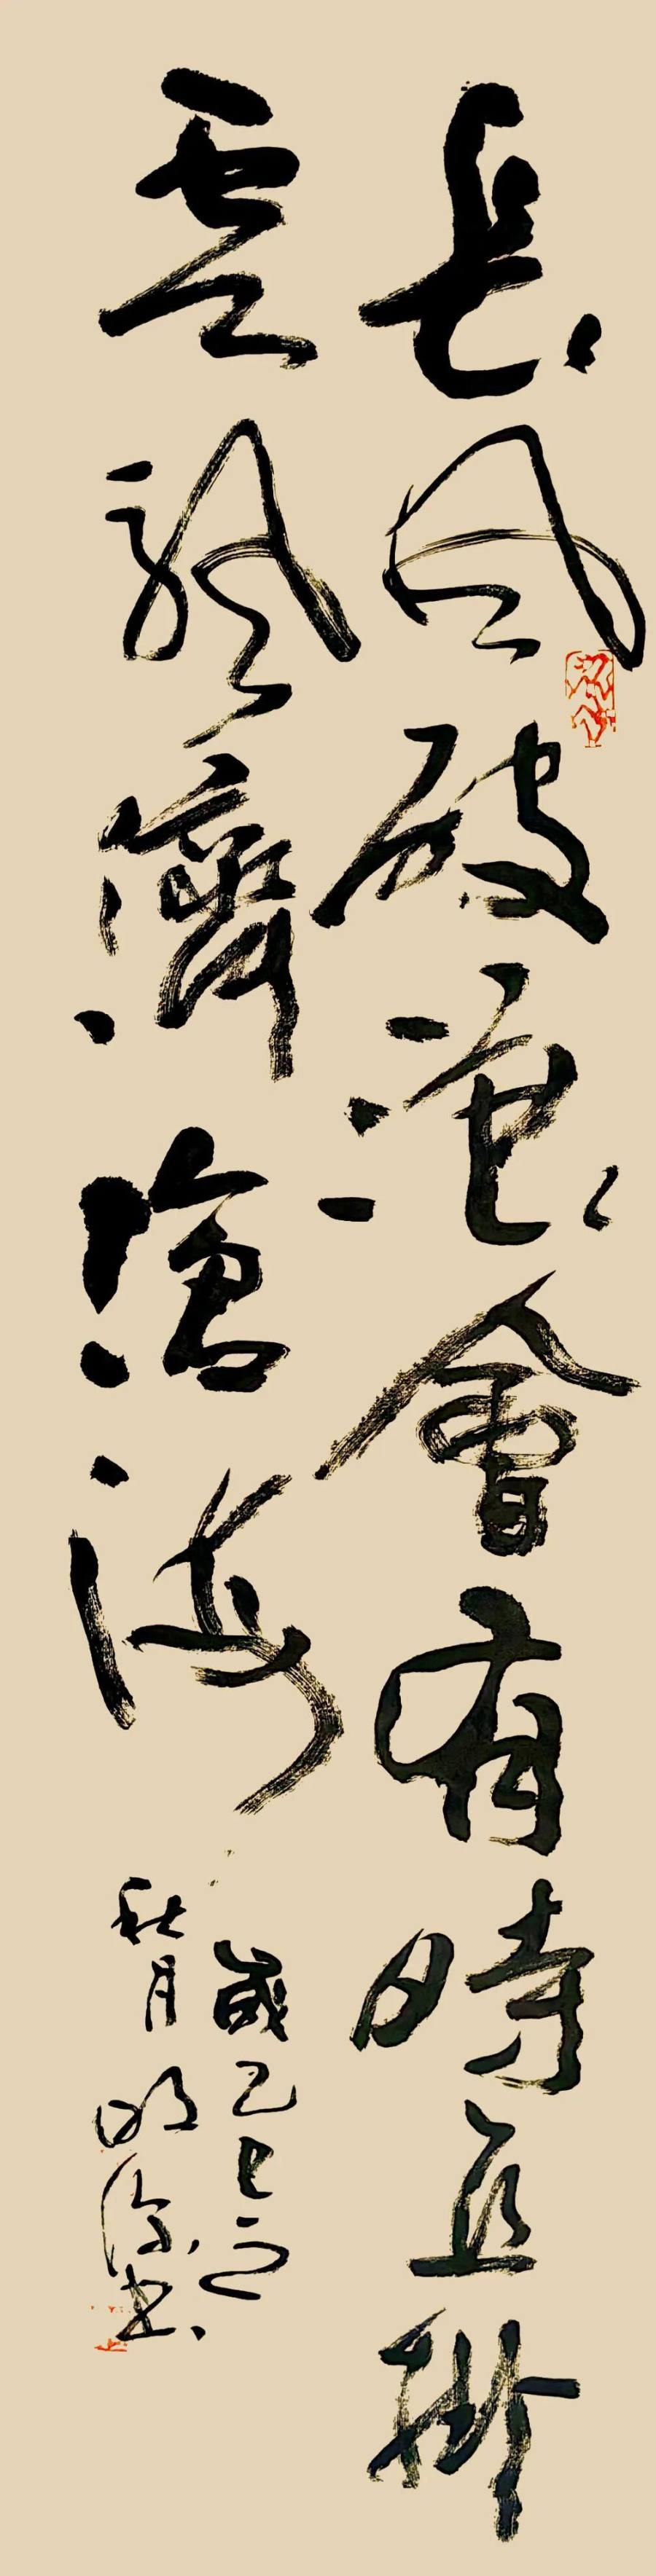 長風破浪會有時直掛
雲飄濟滄海
歲乙巳之
秋月明徐書